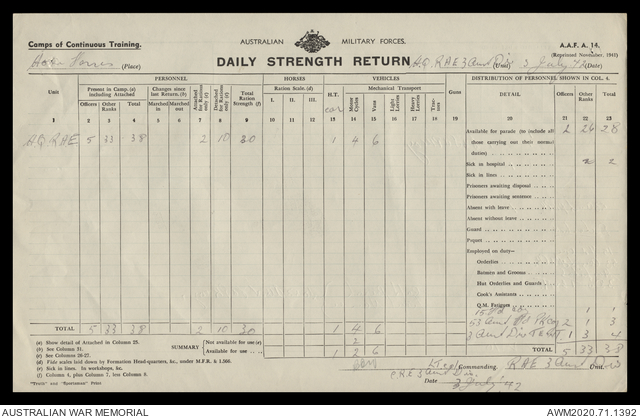 Camps of Continuous Training.
AUSTRALIAN MILITARY FORCES.
A.A.F. A. 14.
(Reprinted November, 1941)
(Place)
DAILY STRENGTH RETURN
H.Q. RAE 3 Aust Div (Unit) 3 July 42 (Date)
PERSONNEL
HORSES
VEHICLES
DISTRIBUTION OF PERSONNEL SHOWN IN COL. 4.
Unit
Present in Camp, (a) including Attached
Changes since last Return. (b)
Attached for Rations only (c)
Detached for Rations only (e)
Total Ration Strength (f)
Ration Scale. (d)
H.T.
Mechanical Transport
Guns
DETAIL
Officers
Other Ranks
Total
Officers
Other Ranks
Total
Marched in
Marched out
I.
II.
III.
car
Motor Cycles
Vans
Light Lorries
Heavy Lorries
Tractors
1 2 3 4 5 6 7 8 9 10 11 12 13 14 15 16 17 18 19 20 21 22 23
HQ RAE 5 33 38 2 10 30 1 4 6
Available for parade (to include all those carrying out their normal duties) 2 26 28
Sick in hospital 2 2
Sick in lines
Prisoners awaiting disposal
Prisoners awaiting sentence
Absent with leave
Absent without leave
Guard
Piquet
Employed on duty—
Orderlies
Batmen and Grooms
Hut Orderlies and Guards
Cook's Assistants
Q.M. Fatigues
1 1
2 1 3
1 3 4
TOTAL 5 33 38 2 10 30 1 4 6
TOTAL 5 33 38
SUMMARY
Not available for use (e) 2
Available for use 1 2 6
(a) Show detail of Attached in Column 25.
(b) See Column 31.
(c) See Columns 26-27.
(d) Vide scales laid down by Formation Head-quarters, &c., under M.F.R. & I.566.
(e) Sick in lines. In workshops, &c.
(f) Column 4, plus Column 7, less Column 8.
Commanding RAE 3 Aust Div Unit
CRE 3 Aust Div
Date 3 July '42
AUSTRALIAN WAR MEMORIAL
AWM2020.71.1392